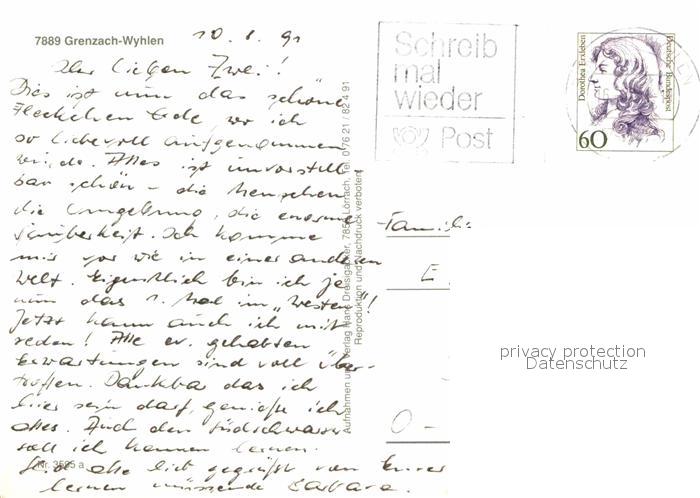 7889 Grenzach-Wyhlen
10.1.91
Ihr lieben Zwei!
Dies ist nun das schöne
Fleckchen Erde, wo ich
so liebevoll aufgenommen
wurde. Alles ist unvorstell
bar schön – die Menschen
die Umgebung, die enorme
Sauberkeit. Ich komme
mir vor wie in einer anderen
Welt. Eigentlich bin ich ja
nun das 1. Mal im „Westen"!
Jetzt kann auch ich mit
reden! Alle ev. gehabten
Erwartungen sind voll über-
troffen. Dankbar das ich
hier sein darf, genieße ich
alles. Auch den Südschwarzw
soll ich kennen lernen.
Seid alle lieb gegrüßt von Eurer
Barbara.
Nr. 3595 a
Aufnahmen und Verlag Hans Dreisigacker, 7850 Lörrach, Tel. 076 21 / 82 4 91
Reproduktion und Nachdruck verboten!
Schreib
mal
wieder
Post
Dorothea Erxleben
Deutsche Bundespost
60
Familie
E
O –
privacy protection
Datenschutz